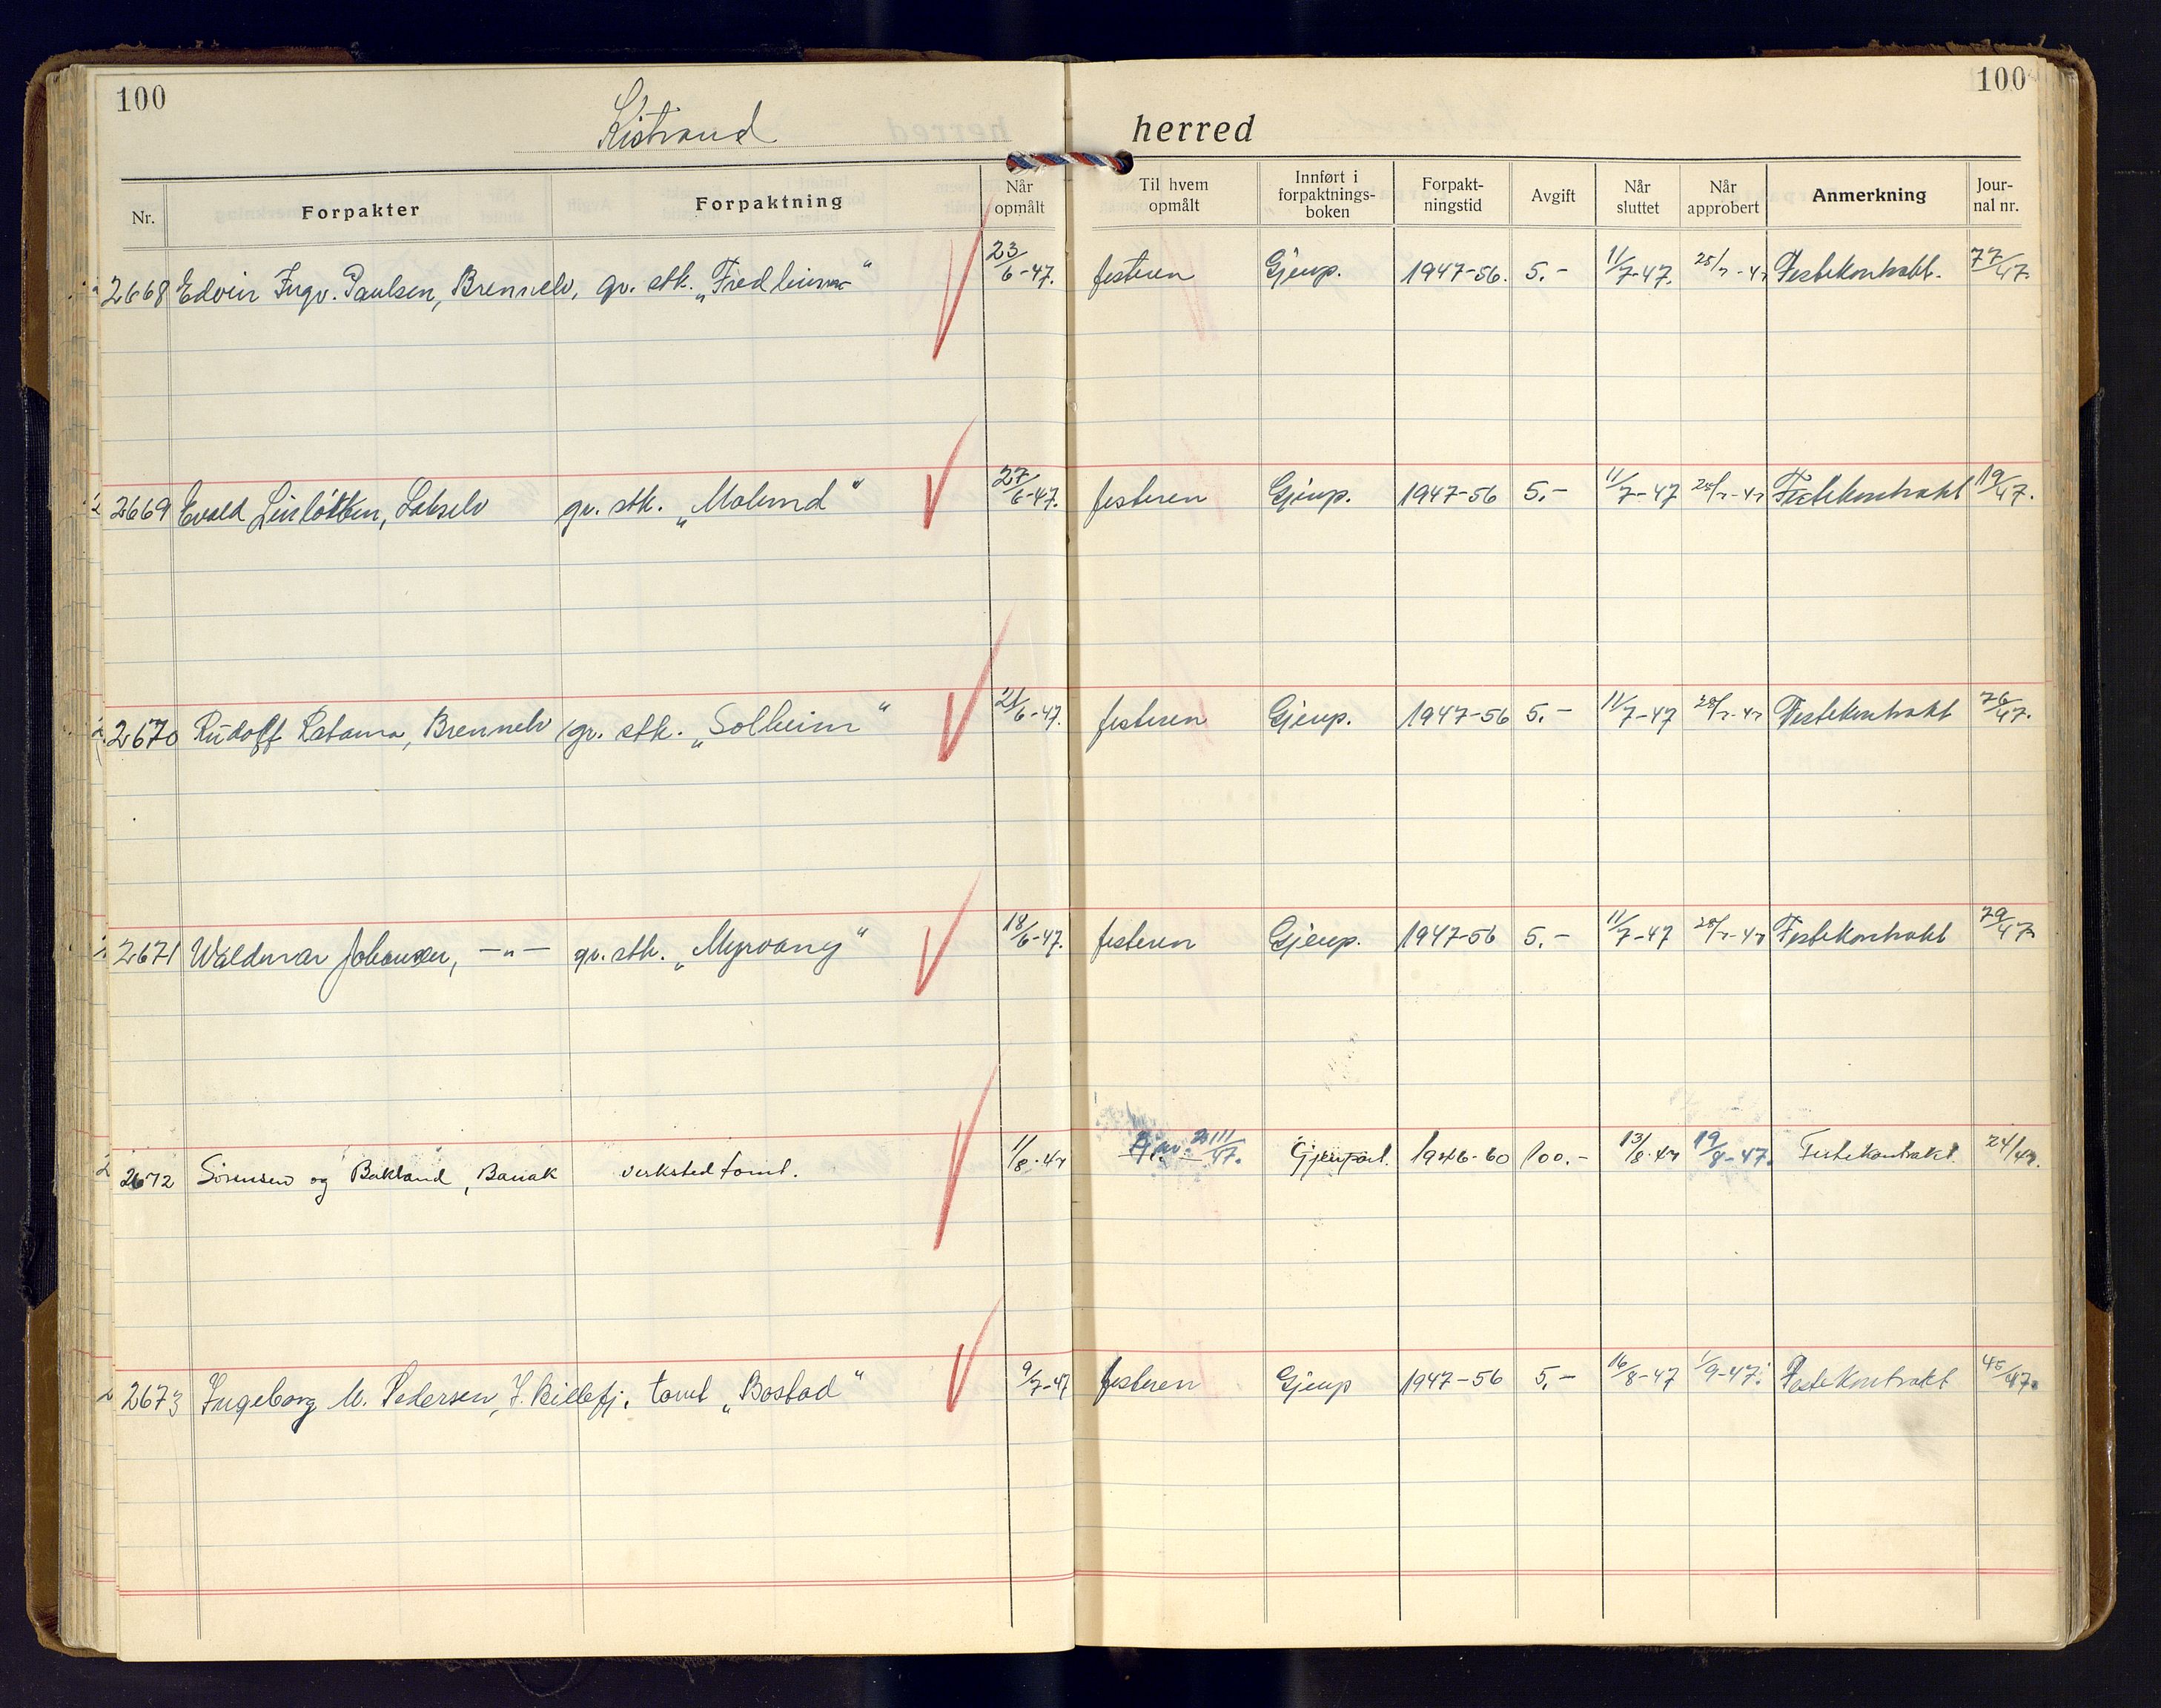 100 100
Kistrand herred
Nr. Forpakter Forpaktning Når opmålt Til hvem opmålt Innført i forpaktnings-boken Forpakt-ningstid Avgift Når sluttet Når approbert Anmerkning Jour-nal nr.
2668 Edvin Ingv. Paulsen, Brennelv, gr. stk. „Fredheim“ 23/6-47. festeren Gjenp. 1947-56. 5.- 11/7-47. 28/7-47 Festekontrakt. 77/47.
2669 Evald Leilötten, Lakselv gr. stk. „Molund“ 27/6-47. festeren Gjenp. 1947-56 5.- 11/7-47 28/7-47 Festekontrakt 19/47.
2670 Rudolf Ratama, Brennelv gr. stk. „Solheim“ 21/6-47. festeren Gjenp. 1947-56 5.- 11/7-47 28/7-47 Festekontrakt 76/47.
2671 Waldemar Johansen, —„— gr. stk. „Myrvang“ 18/6-47. festeren Gjenp. 1947-56 5.- 11/7-47 28/7-47 Festekontrakt 79/47
2672 Sørensen og Bakland, Banak verkstedtomt. 11/8-47 Gjenpart. 1946-60 100.- 13/8-47 19/8-47. Festekontrakt. 24/47.
2673 Ingeborg M. Pedersen, I. Billefj. tomt „Bostad“ 9/7-47 festeren Gjenp 1947-56 5.- 16/8-47 1/9-47. Festekontrakt 45/47.